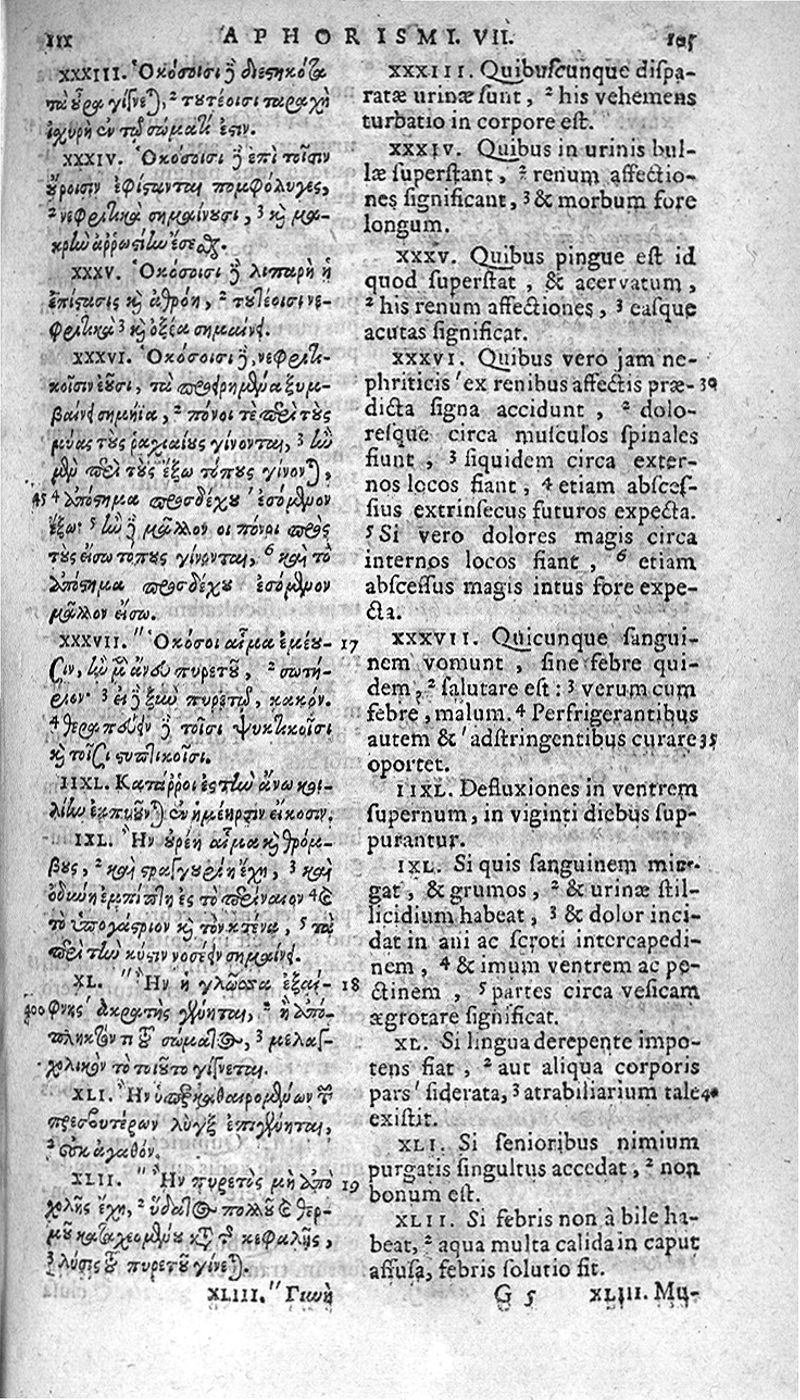 APHORISMI. VII.
XXXIII. Ὁκόσοισι ἢ διεστηκότα
τὰ οὖρα γίγνεται, 2 τουτέοισι ταραχὴ
ἰσχυρὴ ἐν τῷ σώματί ἐστιν.
XXXIV. Ὁκόσοισι δὲ ἐπὶ τοῖσιν
οὔροισιν ἐφίστανται πομφόλυγες,
2 νεφριτικὰ σημαίνουσι, 3 καὶ μα-
κρὴν ἀῤῥωστίην ἔσεσθαι.
XXXV. Ὁκόσοισι δὲ λιπαρὴ ἡ
ἐπίστασις καὶ ἀθρόη, 2 τουτέοισι νε-
φριτικὰ 3 καὶ ὀξέα σημαίνει.
XXXVI. Ὁκόσοισι δὲ, νεφριτι-
κοῖσιν ἐοῦσι, τὰ προειρημένα ξυμ-
βαίνει σημήϊα, 2 πόνοι τε περὶ τοὺς
μύας τοὺς ῥαχιαίους γίνονται, 3 ἢν
μὲν περὶ τοὺς ἔξω τόπους γίνονται,
45 4 ἀπόστημα προσδέχου ἐσόμενον
ἔξω· 5 ἢν δὲ μᾶλλον οἱ πόνοι πρὸς
τοὺς εἴσω τόπους γίνονται, 6 καὶ τὸ
ἀπόστημα προσδέχου ἐσόμενον
μᾶλλον εἴσω.
XXXVII. " Ὁκόσοι αἷμα ἐμέου- 17
σιν, ἢν μὲν ἄνευ πυρετοῦ, 2 σωτή-
ριον· 3 εἰ δὲ ξὺν πυρετῷ, κακόν.
4 θεραπεύειν δὲ τοῖσι ψυκτικοῖσι
καὶ τοῖσι στυπτικοῖσι.
IIXL. Κατάῤῥοι ἐς τὴν ἄνω κοι-
λίην ἐκπυοῦνται ἐν ἡμέρῃσιν εἴκοσιν.
IXL. Ἢν οὐρέῃ αἷμα καὶ θρόμ-
βους, 2 καὶ στραγγουρίη ἔχῃ, 3 καὶ
ὀδύνη ἐμπίπτῃ ἐς τὸ περίναιον 4 καὶ
τὸ ὑπογάστριον καὶ τὸν κτένα, 5 τὰ
περὶ τὴν κύστιν νοσέειν σημαίνει.
XL. " Ἢν ἡ γλῶσσα ἐξαί- 18
400 φνης ἀκρατὴς γένηται, 2 ἢ ἀπό-
πληκτόν τι τοῦ σώματος, 3 μελαγ-
χολικὸν τὸ τοιοῦτο γίγνεται.
XLI. Ἢν ὑπερκαθαιρομένων τῶν
πρεσβυτέρων λὺγξ ἐπιγένηται,
2 οὐκ ἀγαθόν.
XLII. " Ἢν πυρετὸς μὴ ἀπὸ 19
χολῆς ἔχῃ, 2 ὕδατος πολλοῦ καὶ θερ-
μοῦ καταχεομένου κατὰ τῆς κεφαλῆς,
3 λύσις τοῦ πυρετοῦ γίνεται.
XLIII. " Γυνὴ
XXXIII. Quibuscunque dispa-
ratæ urinæ sunt, 2 his vehemens
turbatio in corpore est.
XXXIV. Quibus in urinis bul-
læ superstant, 2 renum affectio-
nes significant, 3 & morbum fore
longum.
XXXV. Quibus pingue est id
quod superstat, & acervatum,
2 his renum affectiones, 3 easque
acutas significat.
XXXVI. Quibus vero jam ne-
phriticis ' ex renibus affectis præ- 30
dicta signa accidunt, 2 dolo-
resque circa musculos spinales
fiunt, 3 siquidem circa exter-
nos locos fiant, 4 etiam absces-
sius extrinsecus futuros expecta.
5 Si vero dolores magis circa
internos locos fiant, 6 etiam
abscessus magis intus fore expe-
cta.
XXXVII. Quicunque sangui-
nem vomunt, sine febre qui-
dem, 2 salutare est: 3 verum cum
febre, malum. 4 Perfrigerantibus
autem & ' adstringentibus curare 35
oportet.
IIXL. Defluxiones in ventrem
supernum, in viginti diebus sup-
purantur.
IXL. Si quis sanguinem min-
gat, & grumos, 2 & urinæ stil-
licidium habeat, 3 & dolor inci-
dat in ani ac scroti intercapedi-
nem, 4 & imum ventrem ac pe-
ctinem, 5 partes circa vesicam
ægrotare significat.
XL. Si lingua derepente impo-
tens fiat, 2 aut aliqua corporis
pars ' siderata, 3 atrabiliarium tale 40
existit.
XLI. Si senioribus nimium
purgatis singultus accedat, 2 non
bonum est.
XLII. Si febris non à bile ha-
beat, 2 aqua multa calida in caput
affusa, febris solutio fit.
G 5 XLIII. Mu-